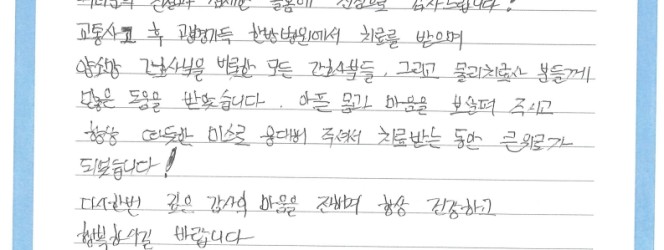 진심으로 감사드립니다!
교통사고 후 광명경희 한방병원에서 치료를 받으며
간호사님을 비롯한 모든 간호사분들, 그리고 물리치료사 분들께
많은 도움을 받았습니다. 아픈 몸과 마음을 보살펴 주시고
항상 따뜻한 미소로 응대해 주셔서 치료받는 동안 큰 위로가
되었습니다!
다시한번 깊은 감사의 마음을 전하며 항상 건강하고
행복하시길 바랍니다